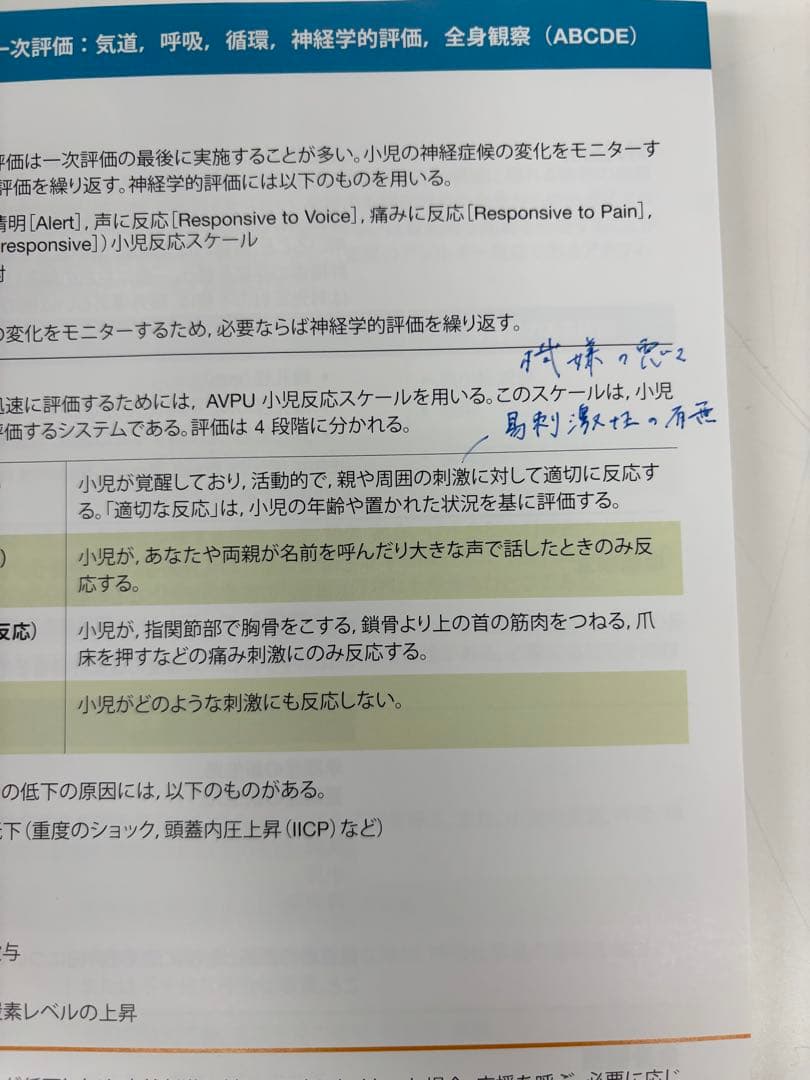 一次評価：気道，呼吸，循環，神経学的評価，全身観察（ABCDE）
評価は一次評価の最後に実施することが多い。小児の神経症候の変化をモニターす
評価を繰り返す。神経学的評価には以下のものを用いる。
清明[Alert]，声に反応[Responsive to Voice]，痛みに反応[Responsive to Pain]，
responsive]）小児反応スケール
の変化をモニターするため，必要ならば神経学的評価を繰り返す。
機嫌の悪さ
迅速に評価するためには，AVPU 小児反応スケールを用いる。このスケールは，小児
易刺激性の有無
評価するシステムである。評価は 4 段階に分かれる。
小児が覚醒しており，活動的で，親や周囲の刺激に対して適切に反応す
る。「適切な反応」は，小児の年齢や置かれた状況を基に評価する。
）
小児が，あなたや両親が名前を呼んだり大きな声で話したときのみ反
応する。
反応）
小児が，指関節部で胸骨をこする，鎖骨より上の首の筋肉をつねる，爪
床を押すなどの痛み刺激にのみ反応する。
小児がどのような刺激にも反応しない。
の低下の原因には，以下のものがある。
低下（重度のショック，頭蓋内圧上昇（IICP）など）
与
素レベルの上昇